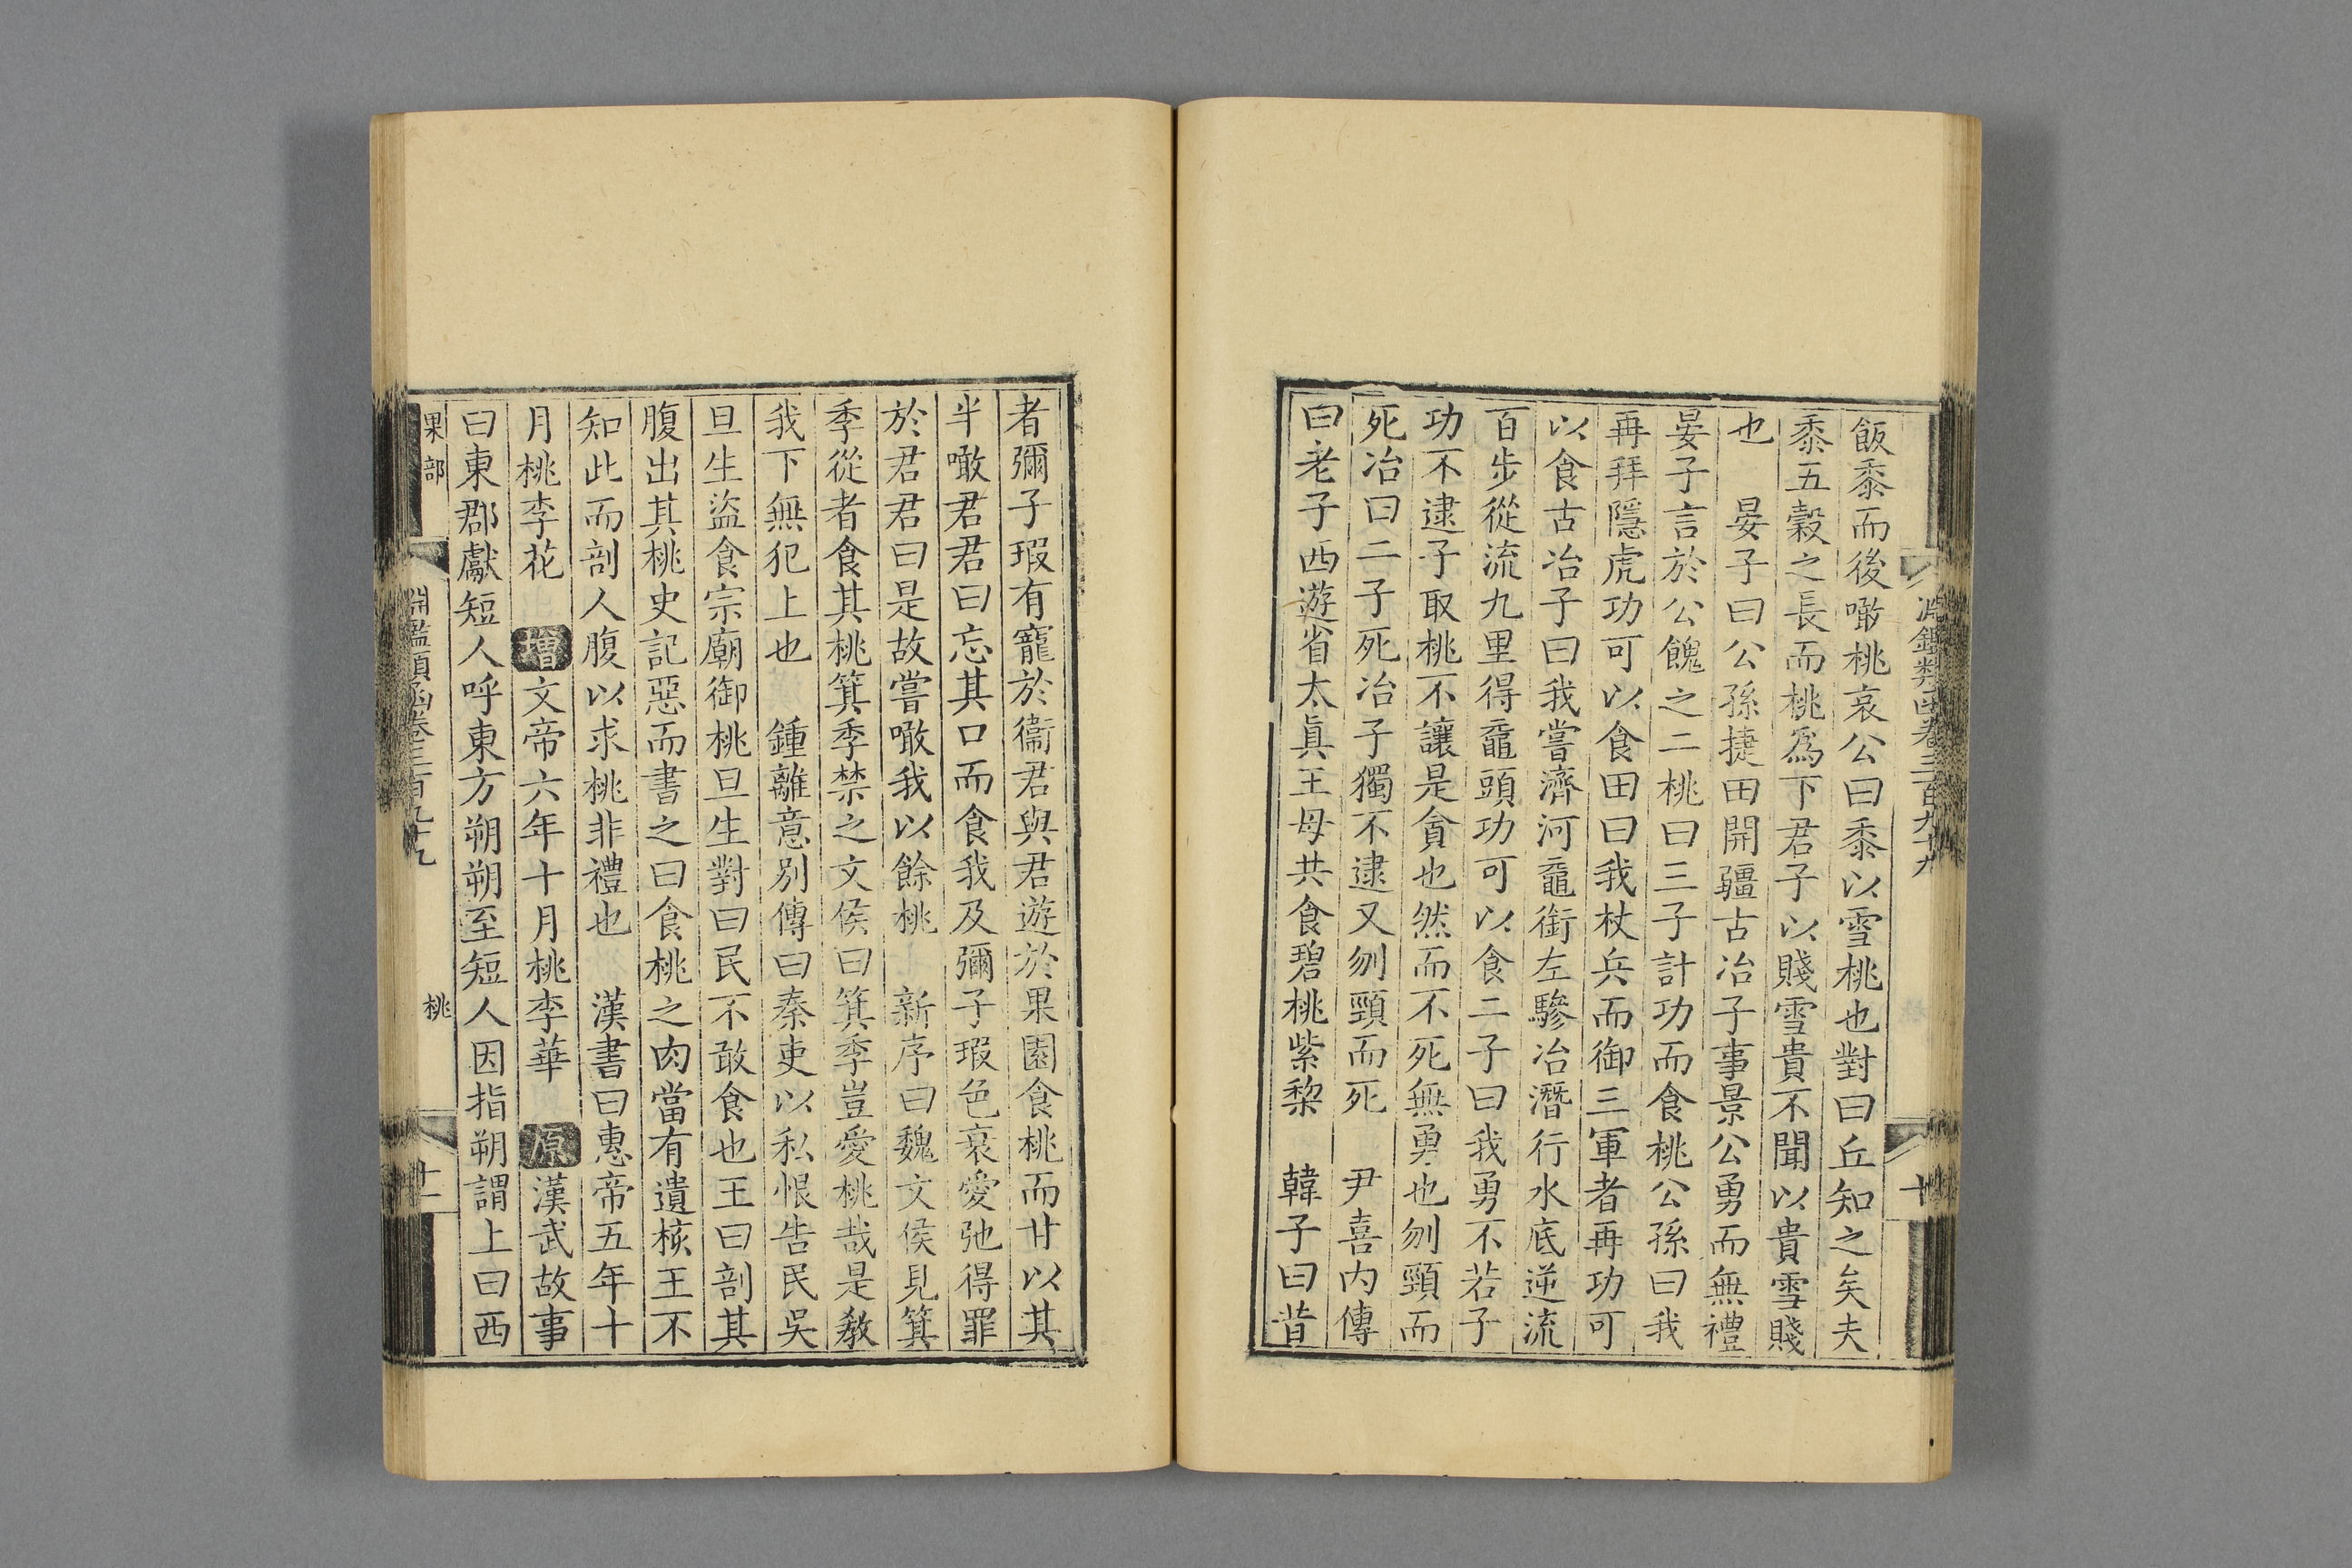 淵鑑類函卷三百九十九
十
飯黍而後噉桃哀公曰黍以雪桃也對曰丘知之矣夫
黍五穀之長而桃爲下君子以賤雪貴不聞以貴雪賤
也 晏子曰公孫捷田開疆古冶子事景公勇而無禮
晏子言於公餽之二桃曰三子計功而食桃公孫曰我
再拜隱虎功可以食田曰我杖兵而御三軍者再功可
以食古冶子曰我嘗濟河黿銜左驂冶潛行水底逆流
百步從流九里得黿頭功可以食二子曰我勇不若子
功不逮子取桃不讓是貪也然而不死無勇也刎頸而
死冶曰二子死冶子獨不逮又刎頸而死 尹喜內傳
曰老子西遊省太眞王母共食碧桃紫棃 韓子曰昔
者彌子瑕有寵於衞君與君遊於果園食桃而甘以其
半噉君君曰忘其口而食我及彌子瑕色衰愛弛得罪
於君君曰是故嘗噉我以餘桃 新序曰魏文侯見箕
季從者食其桃箕季禁之文侯曰箕季豈愛桃哉是敎
我下無犯上也 鍾離意別傳曰秦吏以私恨告民吳
旦生盜食宗廟御桃旦生對曰民不敢食也王曰剖其
腹出其桃史記惡而書之曰食桃之肉當有遺核王不
知此而剖人腹以求桃非禮也 漢書曰惠帝五年十
月桃李花 增文帝六年十月桃李華 原漢武故事
曰東郡獻短人呼東方朔朔至短人因指朔謂上曰西
果部
淵鑑類函卷三百九十九
桃
十一